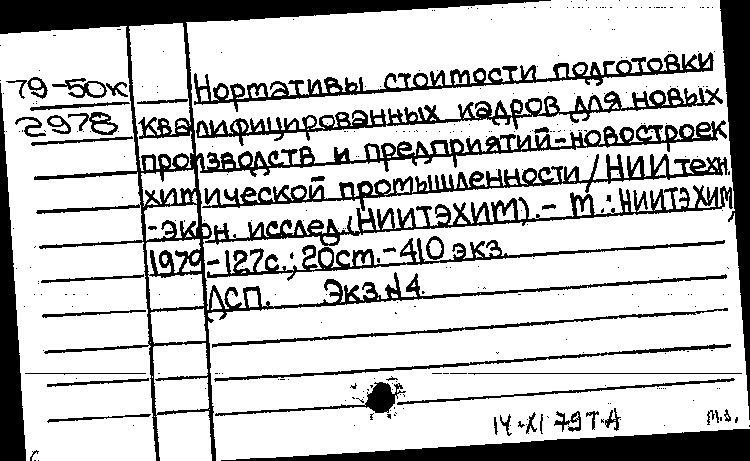 79-50к Нормативы стоимости подготовки
2978 квалифицированных кадров для новых
производств и предприятий-новостроек
химической промышленности/НИИ техн.
-экон. исслед.(НИИТЭХИМ).- М.: НИИТЭХИМ,
1979.-127с.; 20см.-410 экз.
ДСП. Экз.№4.
14.XI 79 Т-А м.з.